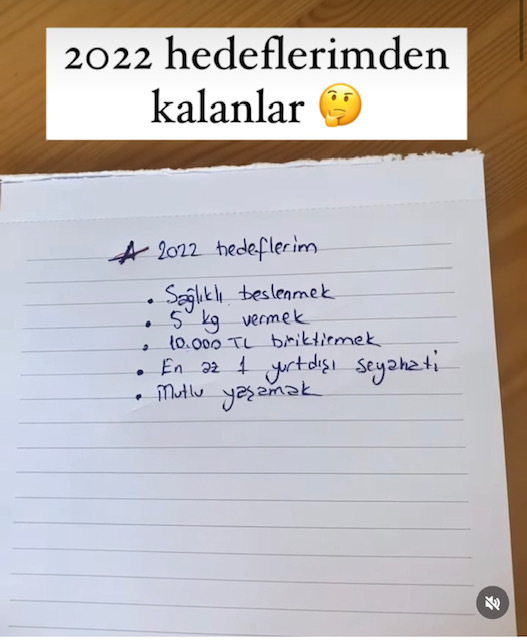 2022 hedeflerimden
kalanlar 🤔
★ 2022 hedeflerim
• Sağlıklı beslenmek
• 5 kg vermek
• 10.000 TL biriktirmek
• En az 1 yurtdışı seyahati
• Mutlu yaşamak